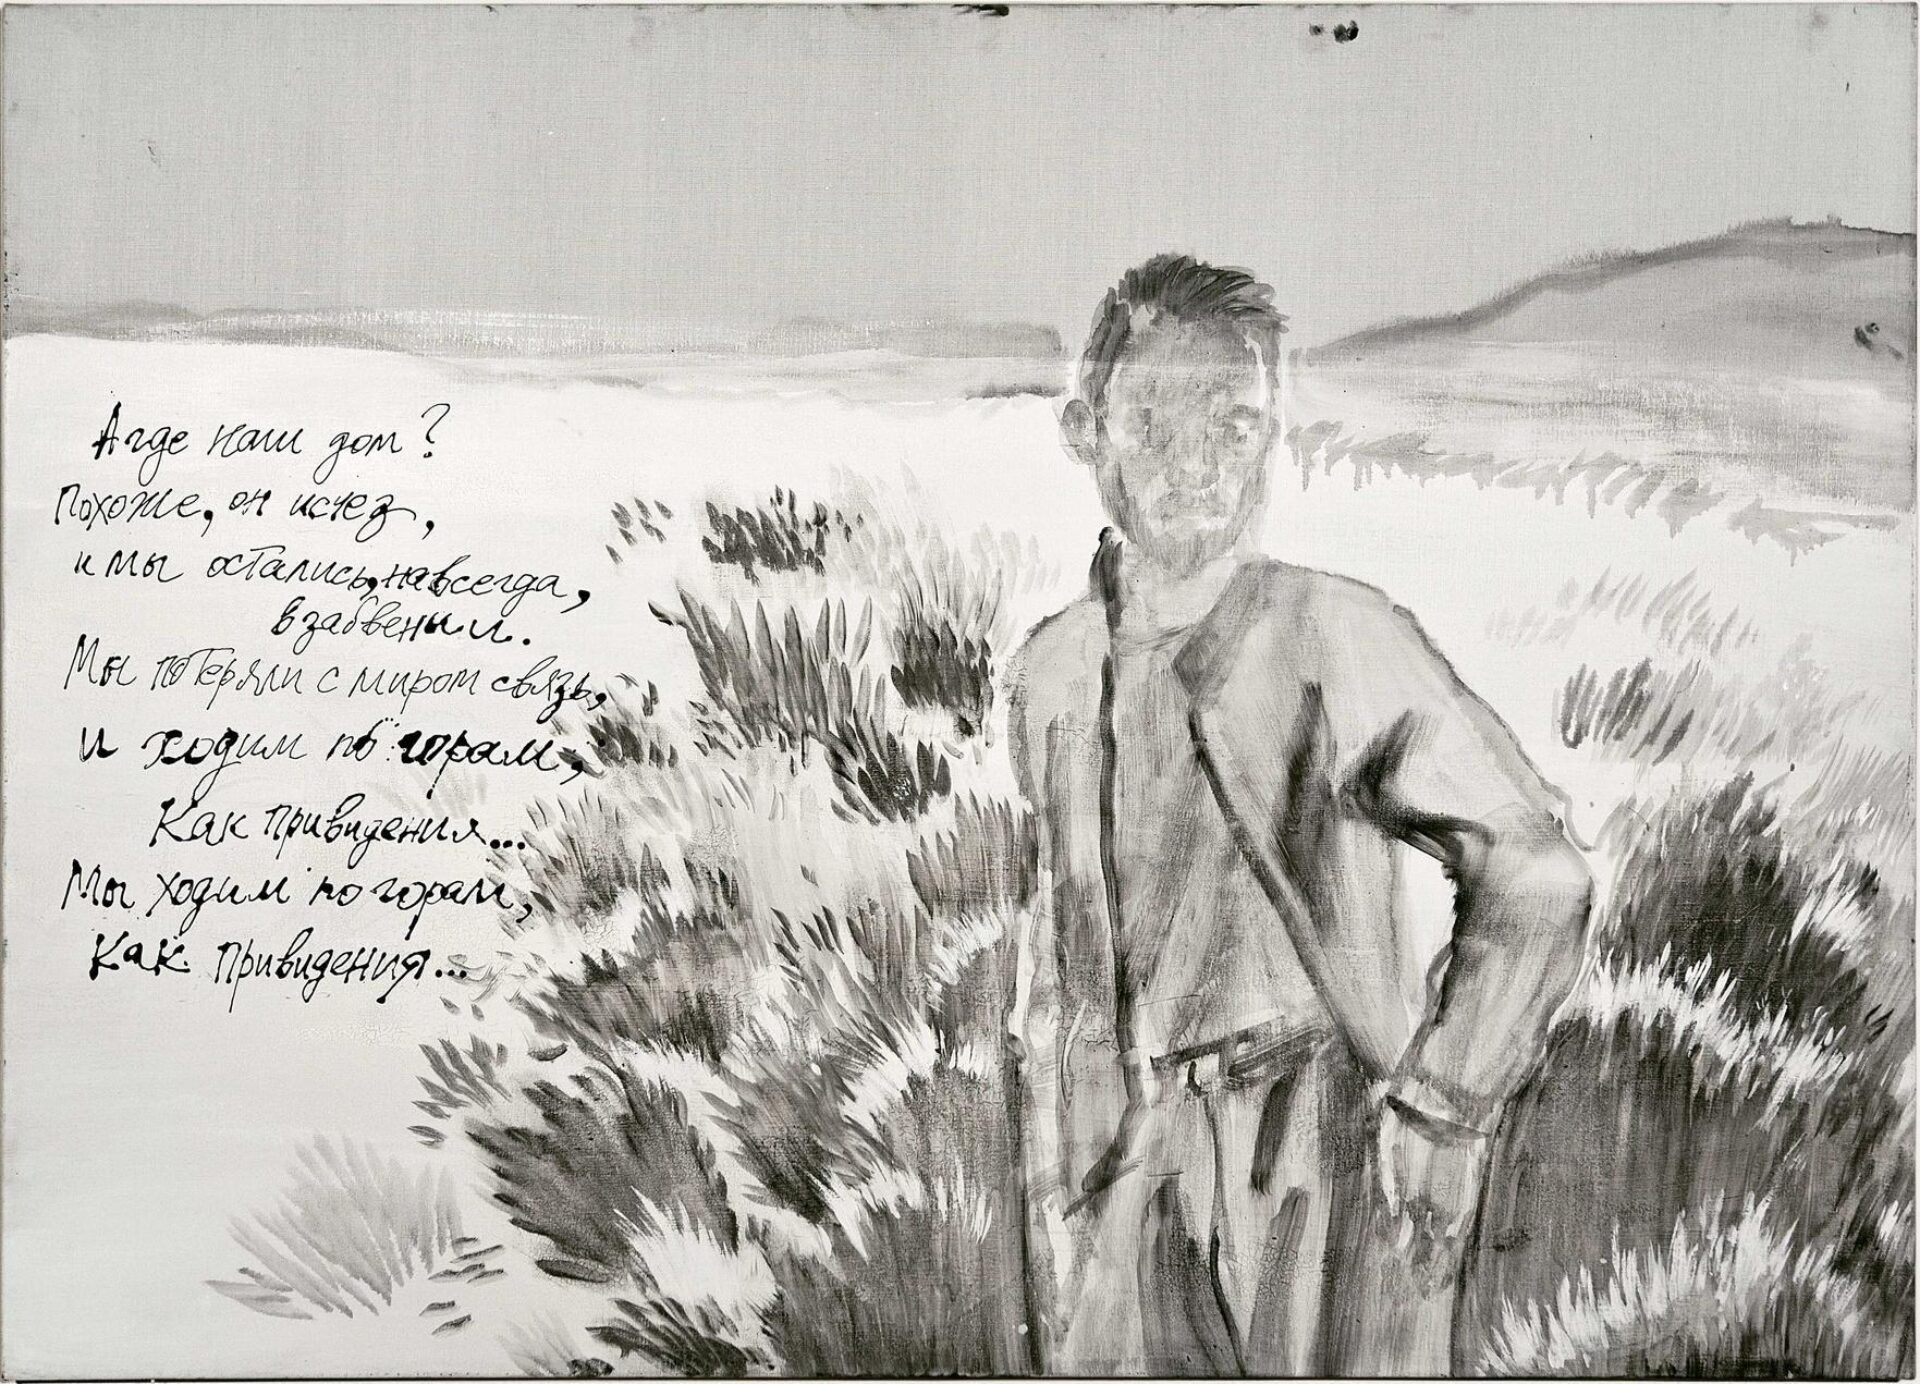 А где наш дом?
Похоже, он исчез,
и мы остались, навсегда,
в забвеньи.
Мы потеряли с миром связь,
и ходим по горам,
Как привидения...
Мы ходим по горам,
Как привидения...